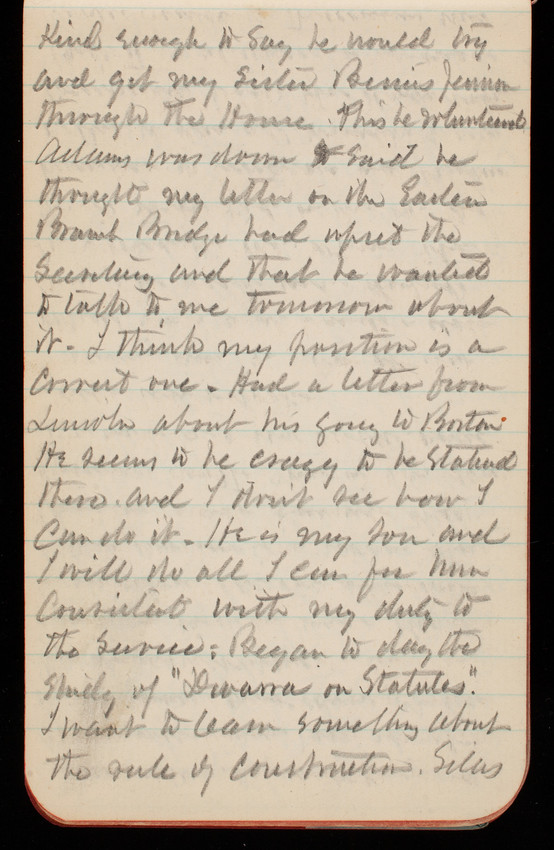 Kind enough to say he would try
and get my Sister Bessies pension
through the House. This he volunteered
Adams was down & said he
thought my letter on the Eastern
Branch Bridge had upset the
Secretary and that he wanted
to talk to me tomorrow about
it. I think my position is a
correct one. Had a letter from
Lincoln about his going to Boston
He seems to be crazy to be stationed
there. and I don't see how I
Can do it. He is my Son and
I will do all I can for him
Consistent with my duty to
the Service: Began to day the
Study of "Dwarris on Statutes".
I want to learn something about
the rule of construction. Silas